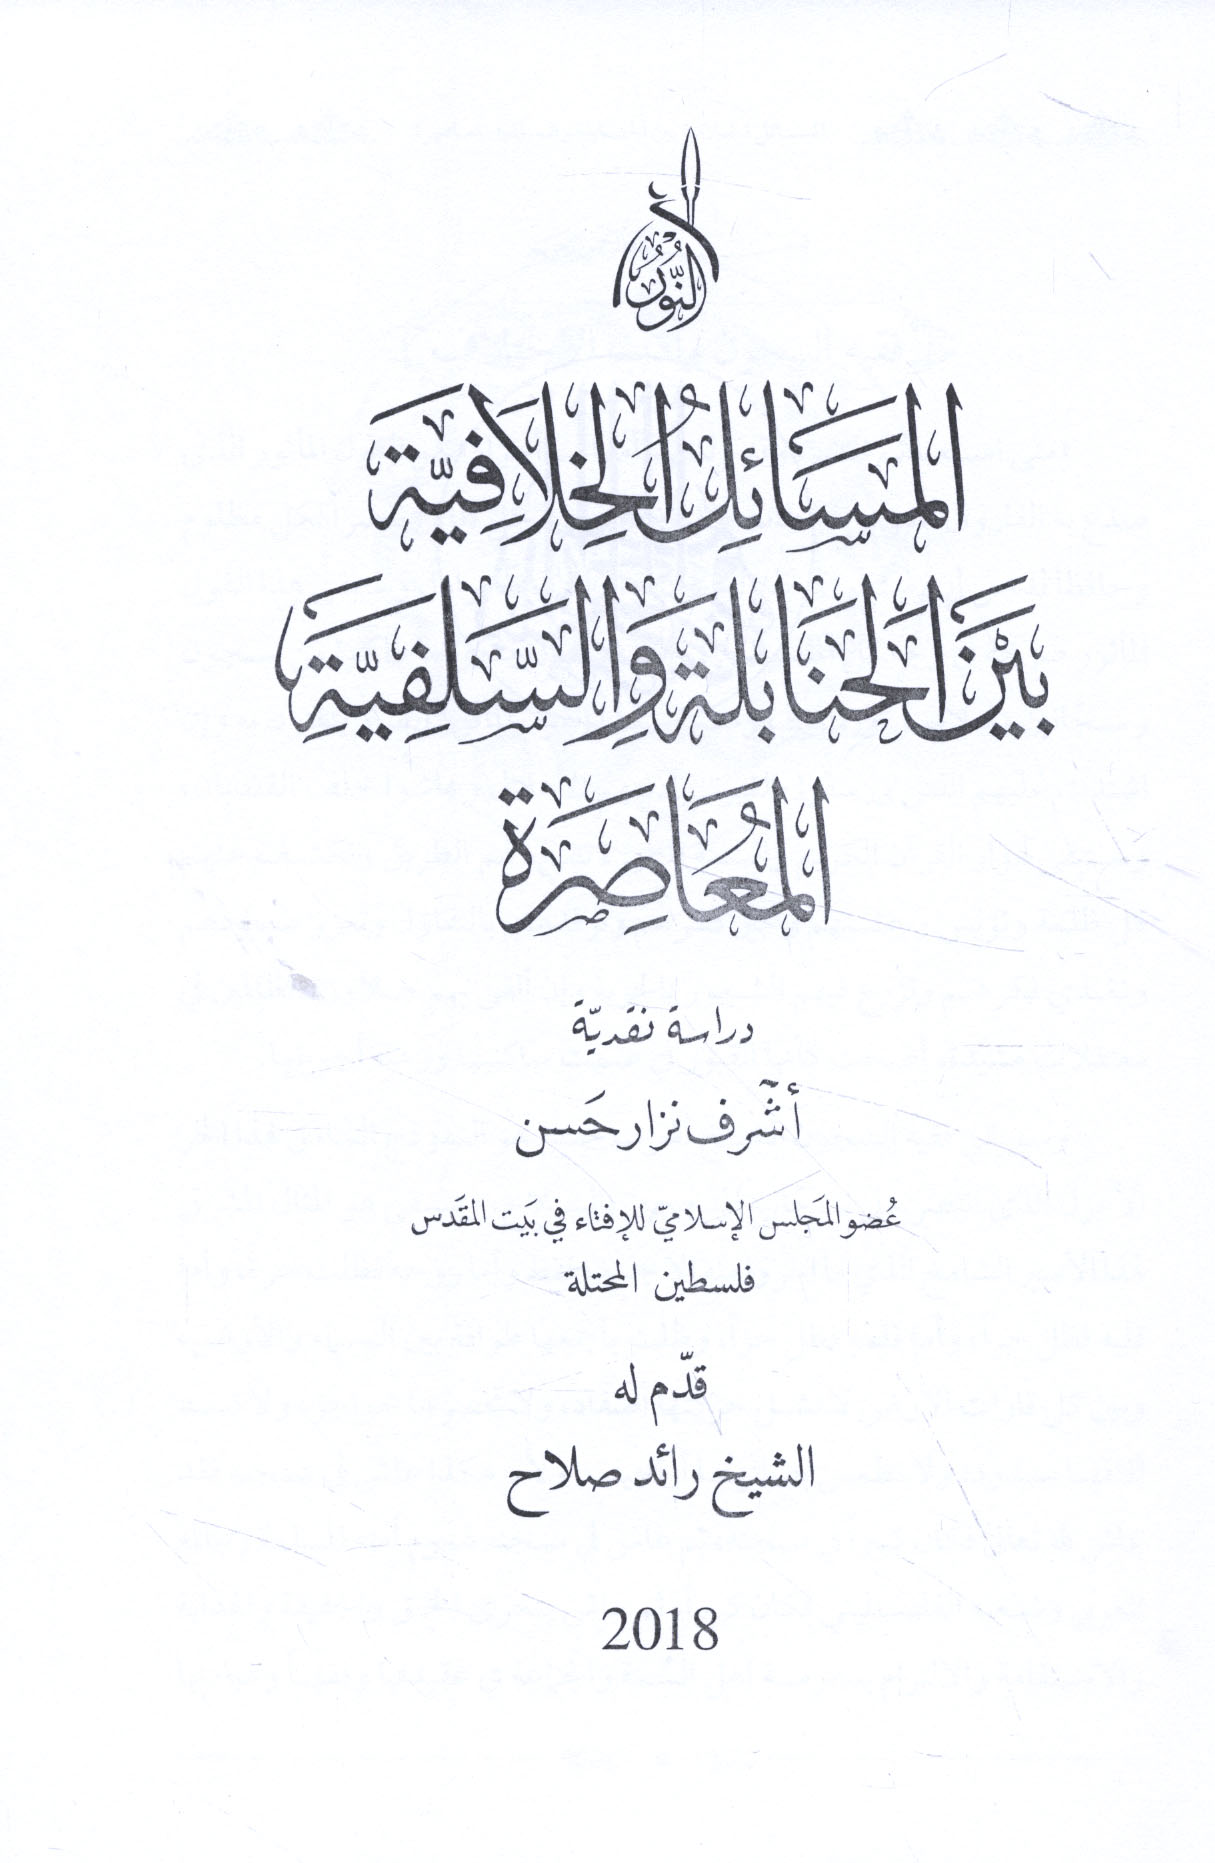 النُّور
المَسَائِلُ الخِلَافِيَّة
بَيْنَ الحَنَابلَة وَالسَّلَفِيَّةِ
المُعَاصِرَة
دراسة نقديّة
أشرف نزار حَسن
عُضو المَجلس الإسلاميّ للإفتاء في بَيت المقَدس
فلسطين المحتلة
قدّم له
الشيخ رائد صلاح
2018